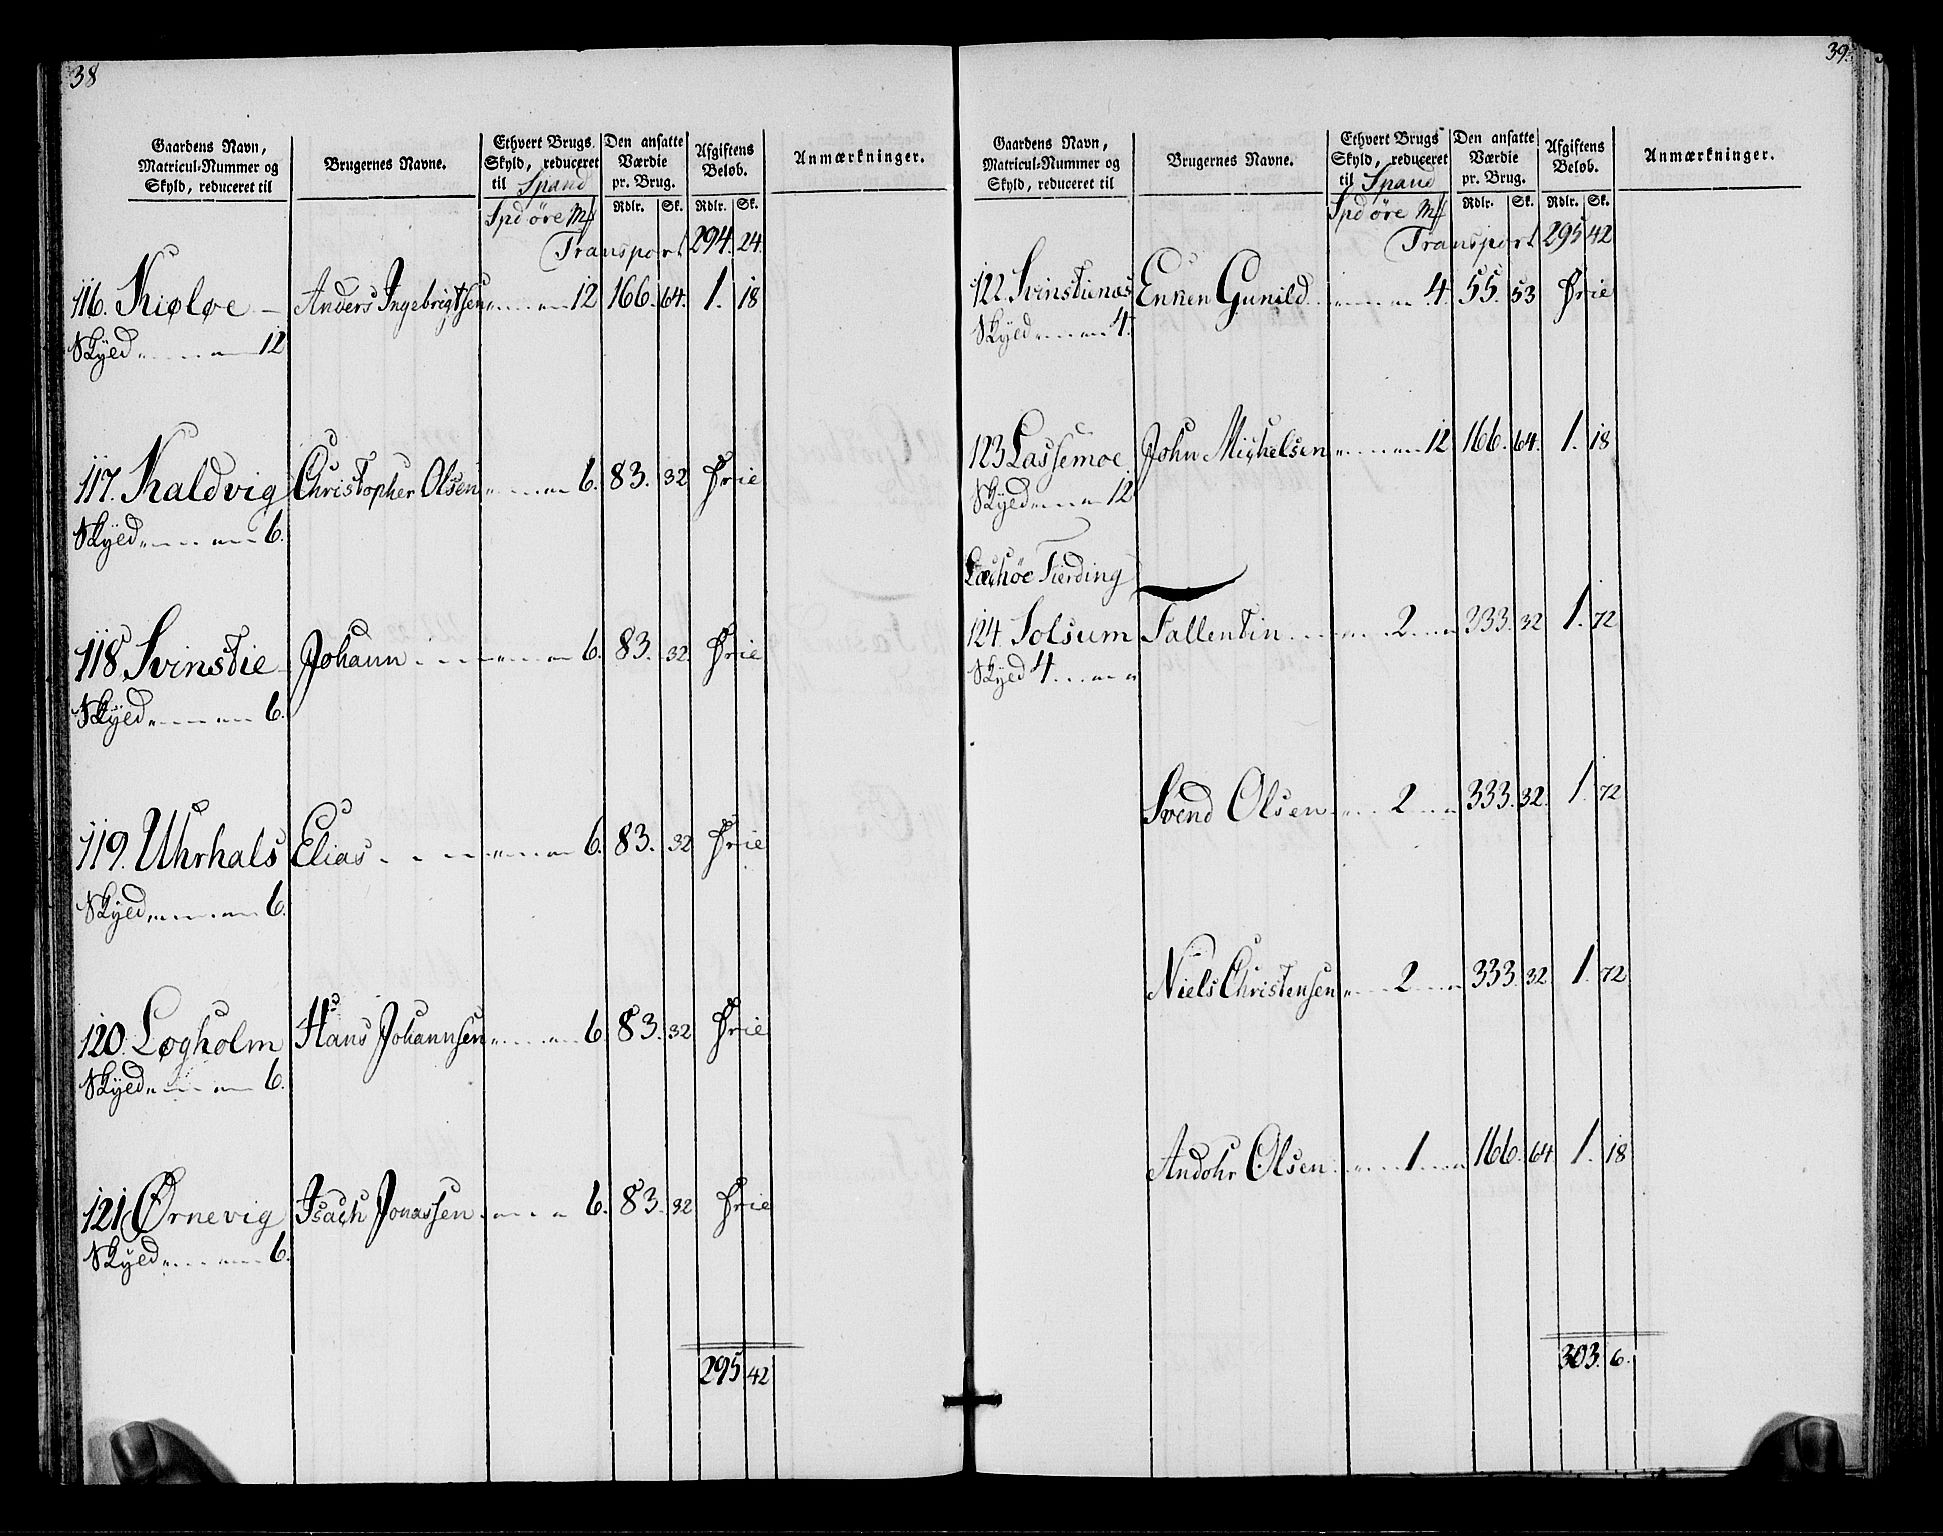 38
Gaardens Navn, Matricul-Nummer og Skyld, reduceret til | Brugernes Navne. | Ethvert Brugs Skyld, reduceret til Spand | Den ansatte Værdie pr. Brug. | Afgiftens Beløb. | Anmærkninger.
Spd öre Mk | Rdlr. | Sk. | Rdlr. | Sk.
Transport 294. 24.
116. Kioløe Anders Ingebrigtsen 12 166. 64. 1. 18
Skyld 12
117. Kaldvig Christopher Olsen 6. 83. 32 frie
Skyld 6.
118 Svinstie Johann 6. 83. 32. frie
Skyld 6.
119. Uhrhals Elias 6. 83. 32 frie
Skyld 6.
120. Løgholm Hans Johannsen 6. 83. 32 frie
Skyld 6.
121 Ørnevig Isach Jonassen 6. 83. 32 frie
Skyld 6.
295 42
39.
Gaardens Navn, Matricul-Nummer og Skyld, reduceret til | Brugernes Navne. | Ethvert Brugs Skyld, reduceret til Spand | Den ansatte Værdie pr. Brug. | Afgiftens Beløb. | Anmærkninger.
Spd öre Mk | Rdlr. | Sk. | Rdlr. | Sk.
Transport 295 42
122. Svinstienæs Enken Gunild 4. 55. 53 frie
Skyld 4.
123 Lassemoe John Michelsen 12 166. 64. 1. 18
Skyld 12
Fierding
124. Solsum Fallentin 2 333. 32 1. 72
Skyld 4
Svend Olsen 2 333. 32. 1. 72
Niels Christensen 2 333. 32 1. 72
Andohr Olsen 1 166. 64 1. 18
303. 6.